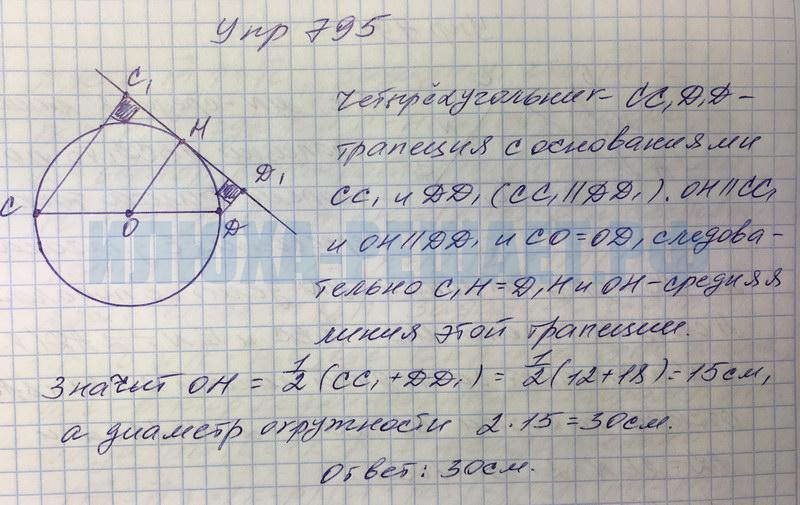 Упр 795
C₁
H
D₁
C
O
D
Четырёхугольник CC₁D₁D –
трапеция с основаниями
CC₁ и DD₁ (CC₁ || DD₁). OH || CC₁
и OH || DD₁ и CO = OD, следова-
тельно C₁H = D₁H и OH – средняя
линия этой трапеции.
Значит OH = 1/2 (CC₁ + DD₁) = 1/2 (12 + 18) = 15 см,
а диаметр окружности 2 · 15 = 30 см.
Ответ: 30 см.